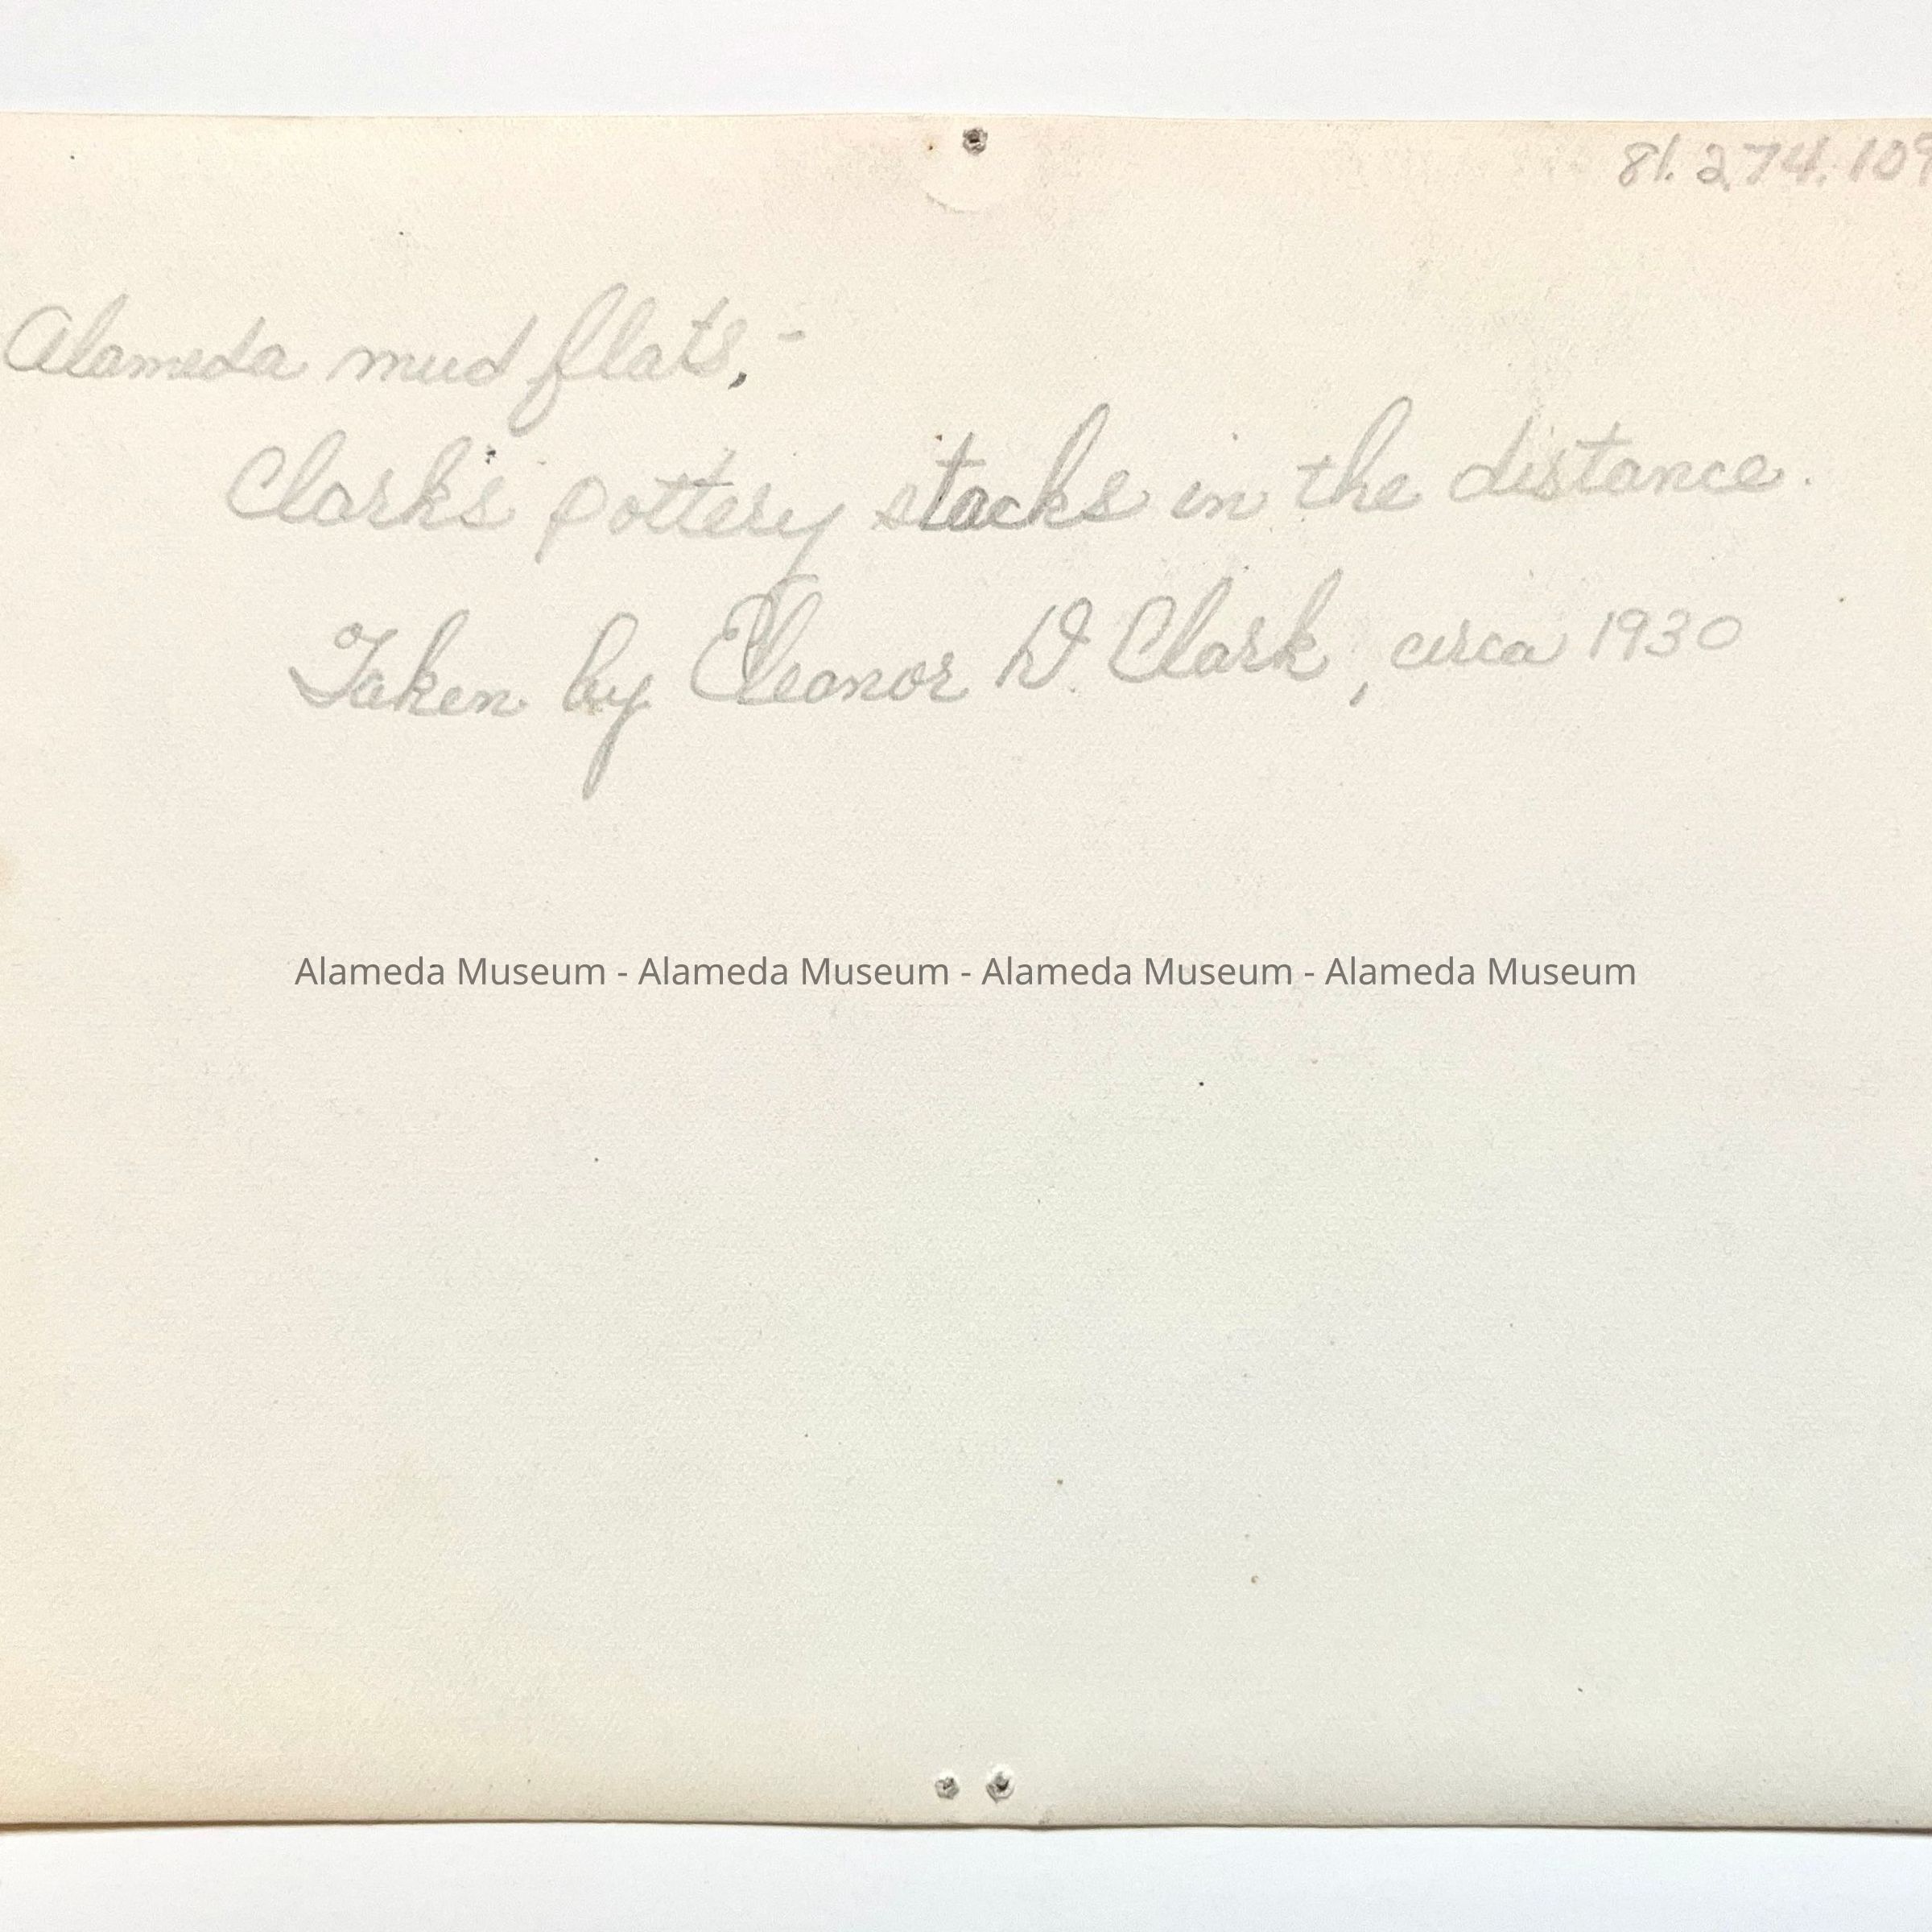 81.274.109
Alameda mud flats, -
Clark's pottery stacks in the distance.
Taken by Eleanor D. Clark, circa 1930
Alameda Museum - Alameda Museum - Alameda Museum - Alameda Museum